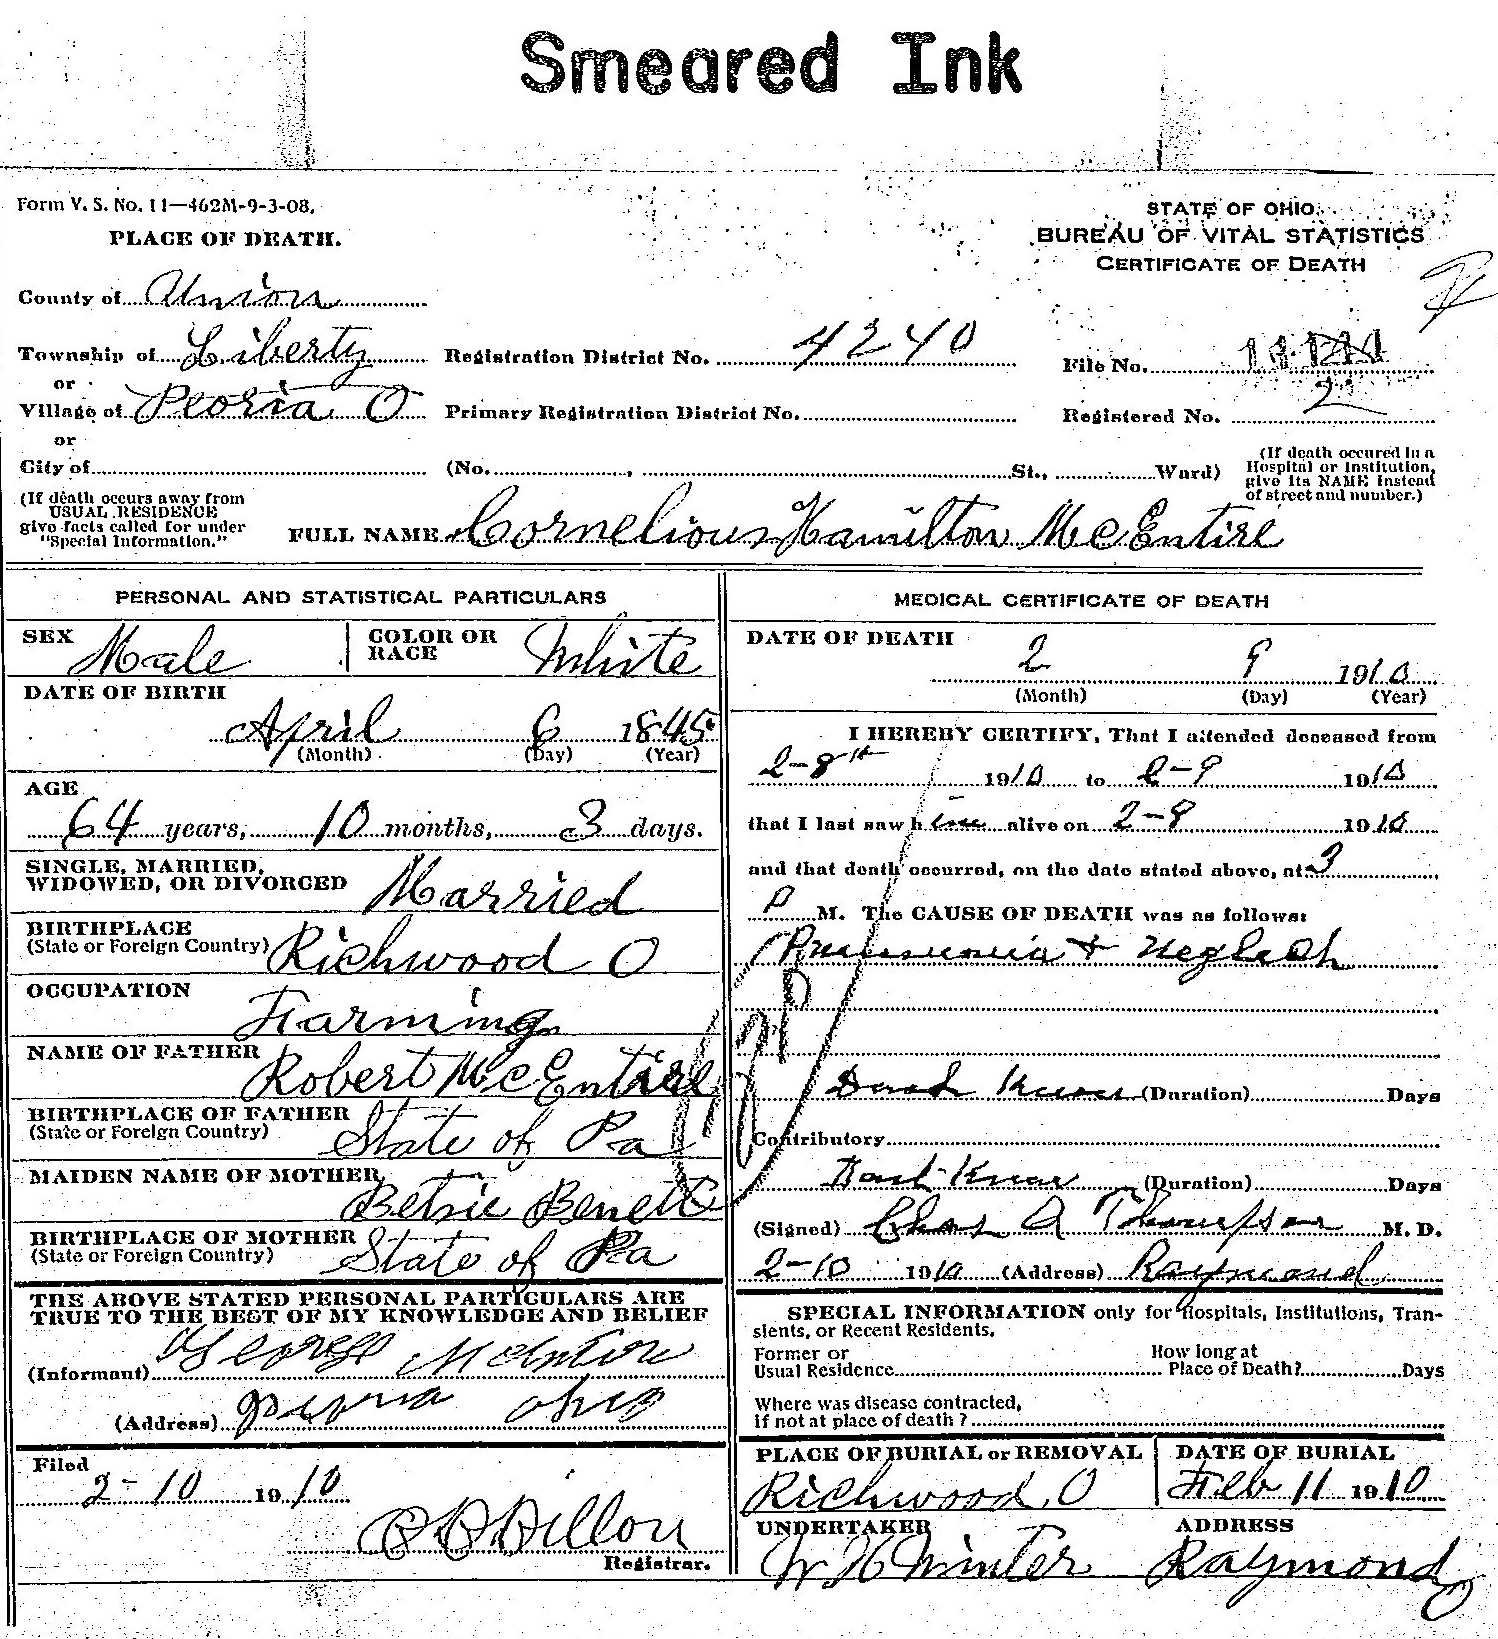 Smeared Ink
Form V. S. No. 11—462M-9-3-08.
PLACE OF DEATH.
STATE OF OHIO.
BUREAU OF VITAL STATISTICS
CERTIFICATE OF DEATH
County of Union
Township of Liberty Registration District No. 4240 File No.
or
Village of Peoria O Primary Registration District No. Registered No. 2
or
City of (No. , St., Ward)
(If death occured in a
Hospital or Institution,
give its NAME instead
of street and number.)
(If death occurs away from
USUAL RESIDENCE
give facts called for under
"Special Information."
FULL NAME Cornelious Hamilton McEntire
PERSONAL AND STATISTICAL PARTICULARS
SEX Male COLOR OR RACE White
DATE OF BIRTH
April 6 1845
(Month) (Day) (Year)
AGE
64 years, 10 months, 3 days.
SINGLE, MARRIED,
WIDOWED, OR DIVORCED Married
BIRTHPLACE
(State or Foreign Country) Richwood O
OCCUPATION
Farming
NAME OF FATHER
Robert McEntire
BIRTHPLACE OF FATHER
(State or Foreign Country) State of Pa
MAIDEN NAME OF MOTHER
Betsie Benett
BIRTHPLACE OF MOTHER
(State or Foreign Country) State of Pa
THE ABOVE STATED PERSONAL PARTICULARS ARE
TRUE TO THE BEST OF MY KNOWLEDGE AND BELIEF
(Informant) George
(Address) Peoria Ohio
Filed
2-10 1910
Dillon
Registrar.
MEDICAL CERTIFICATE OF DEATH
DATE OF DEATH
2 9 1910
(Month) (Day) (Year)
I HEREBY CERTIFY, That I attended deceased from
2-8th 1910 to 2-9 1910
that I last saw him alive on 2-9 1910
and that death occurred, on the date stated above, at 3
P M. The CAUSE OF DEATH was as follows:
Pneumonia + Neglect
Dont Know (Duration) Days
Contributory
Dont Know (Duration) Days
(Signed) Chas A Thompson M. D.
2-10 1910 (Address) Raymond
SPECIAL INFORMATION only for Hospitals, Institutions, Tran-
sients, or Recent Residents.
Former or
Usual Residence
How long at
Place of Death? Days
Where was disease contracted,
if not at place of death?
PLACE OF BURIAL or REMOVAL DATE OF BURIAL
Richwood, O Feb 11 1910
UNDERTAKER ADDRESS
W H Winter Raymond